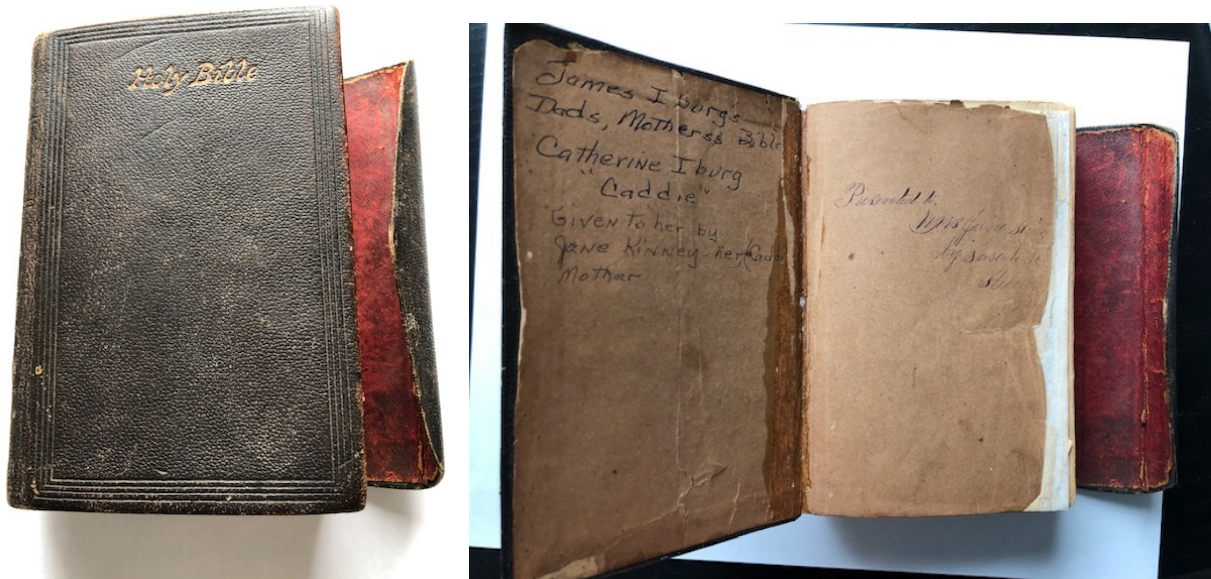 Holy Bible
James Iburg's
Dads, Mothers Bible
Catherine Iburg
"Caddie"
Given to her by
Jane Kinney her
Mother
Presented to
Mrs Jane
by Sarah